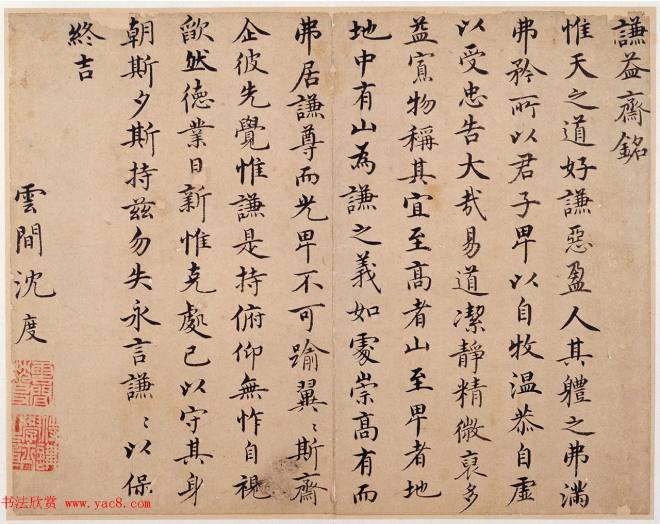 謙益齋銘
惟天之道好謙惡盈人其體之弗滿
弗矜所以君子卑以自牧温恭自虛
以受忠告大哉易道潔靜精微裒多
益寡物稱其宜至髙者山至卑者地
地中有山為謙之義如處崇髙有而
弗居謙尊而光卑不可踰翼〻斯齋
企彼先覺惟謙是持俯仰無怍自視
歉然德業日新惟克處己以守其身
朝斯夕斯持兹勿失永言謙〻以保
終吉
雲間沈度
书法欣赏 www.yac8.com